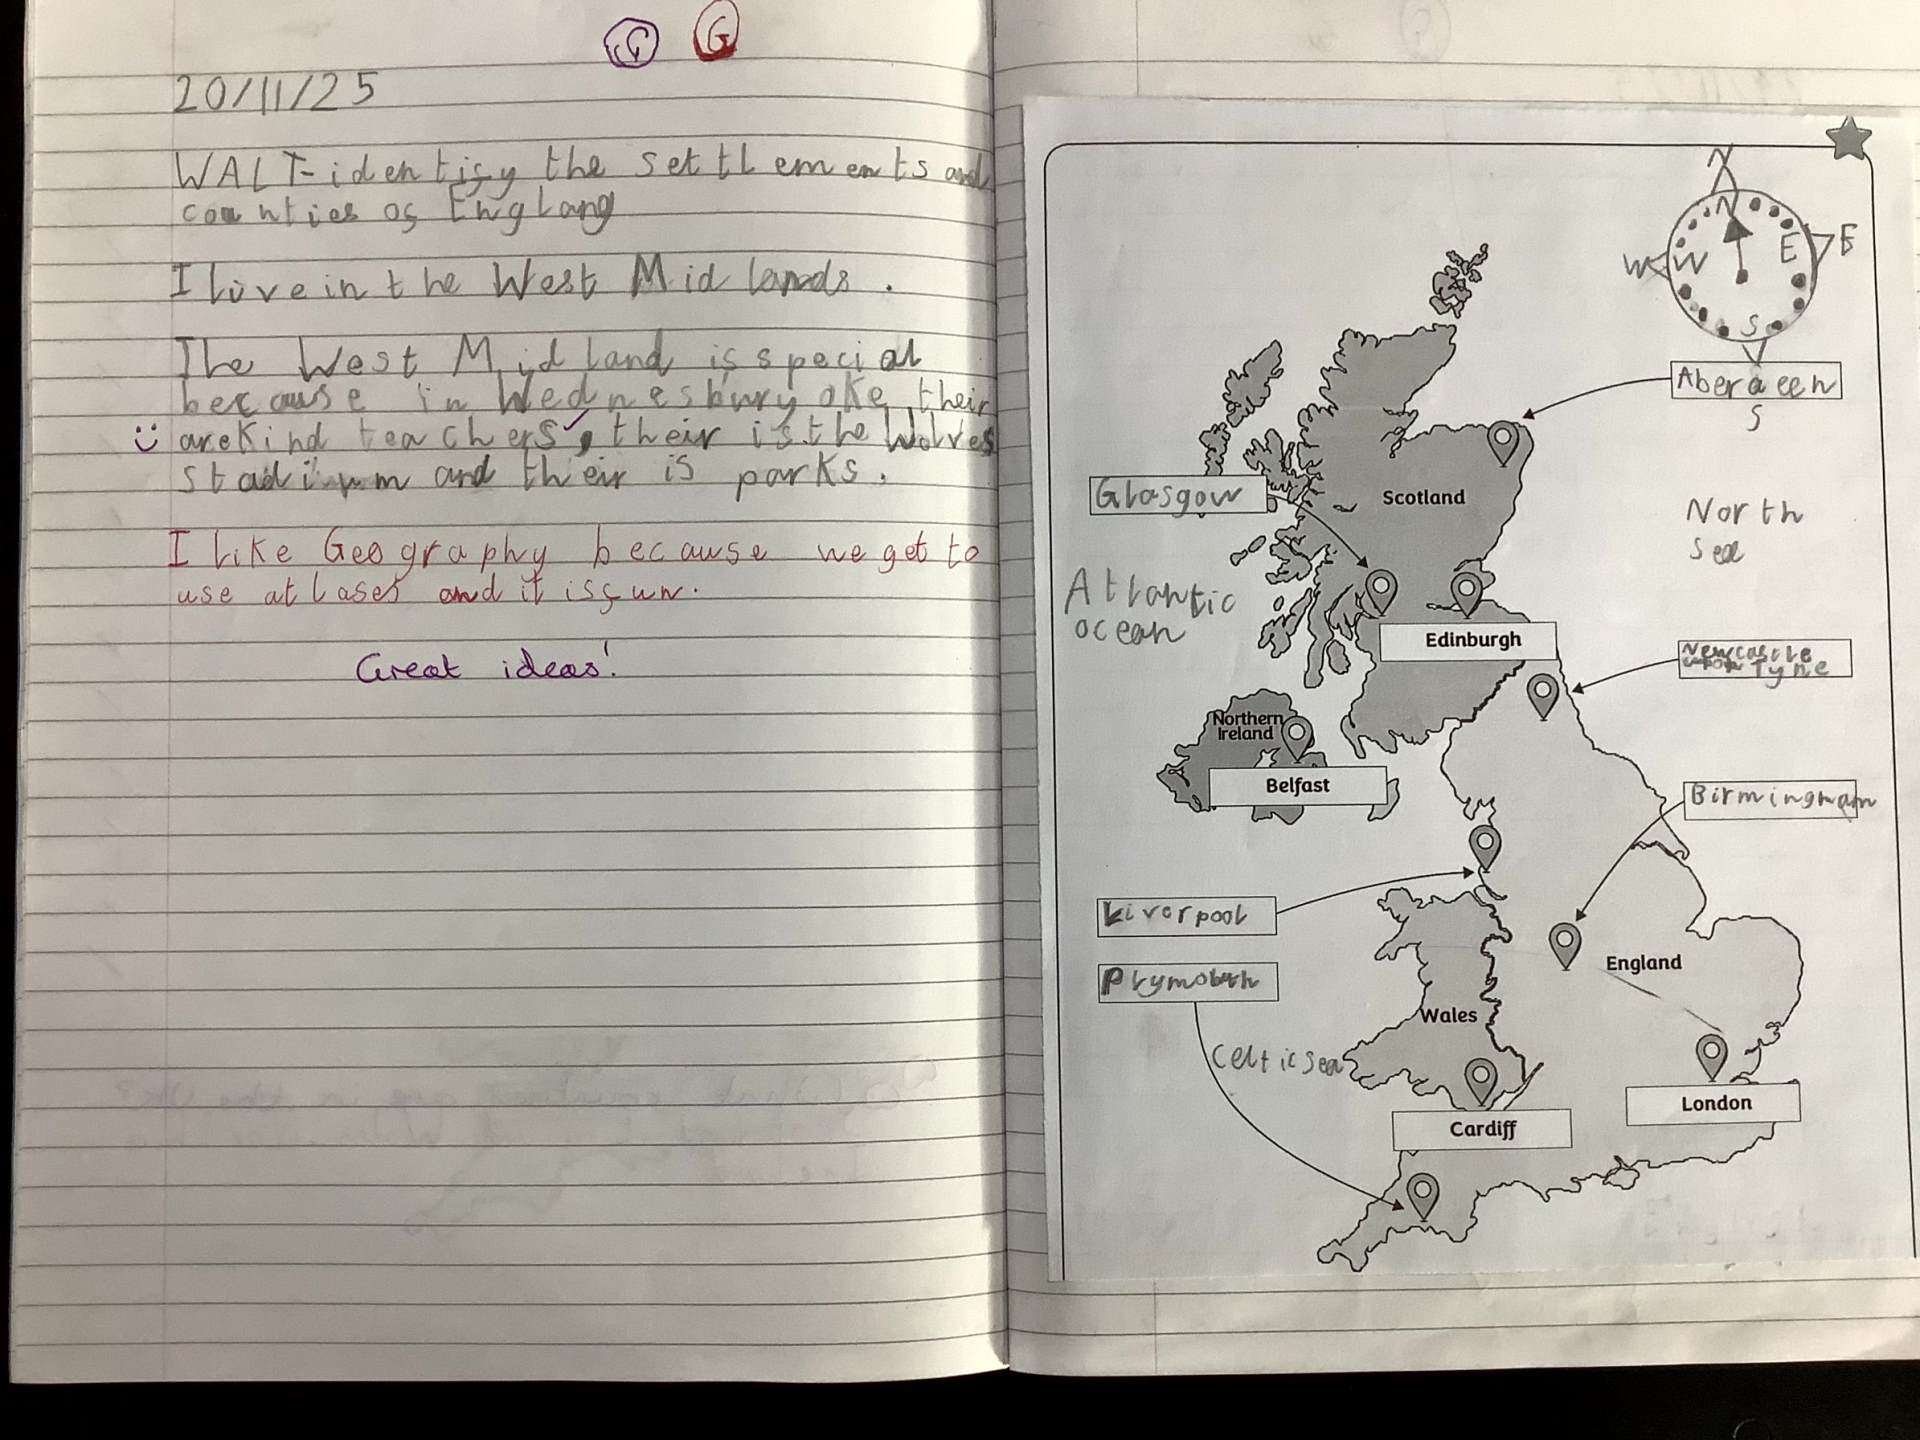 G G
20/11/25
WALT-identify the settlements and
counties of England
I live in the West Midlands.
The West Midland is special
because in Wednesbury oke their
are kind teachers, their is the Wolves
stadium and their is parks.
I like Geography because we get to
use atlases and it is fun.
Great ideas!
N
N
E
E
W
W
S
S
Aberdeen
Glasgow
Scotland
North
sea
Atlantic
ocean
Edinburgh
Newcastle
upon Tyne
Northern
Ireland
Belfast
Birmingham
Liverpool
England
Plymouth
Wales
Celtic sea
London
Cardiff